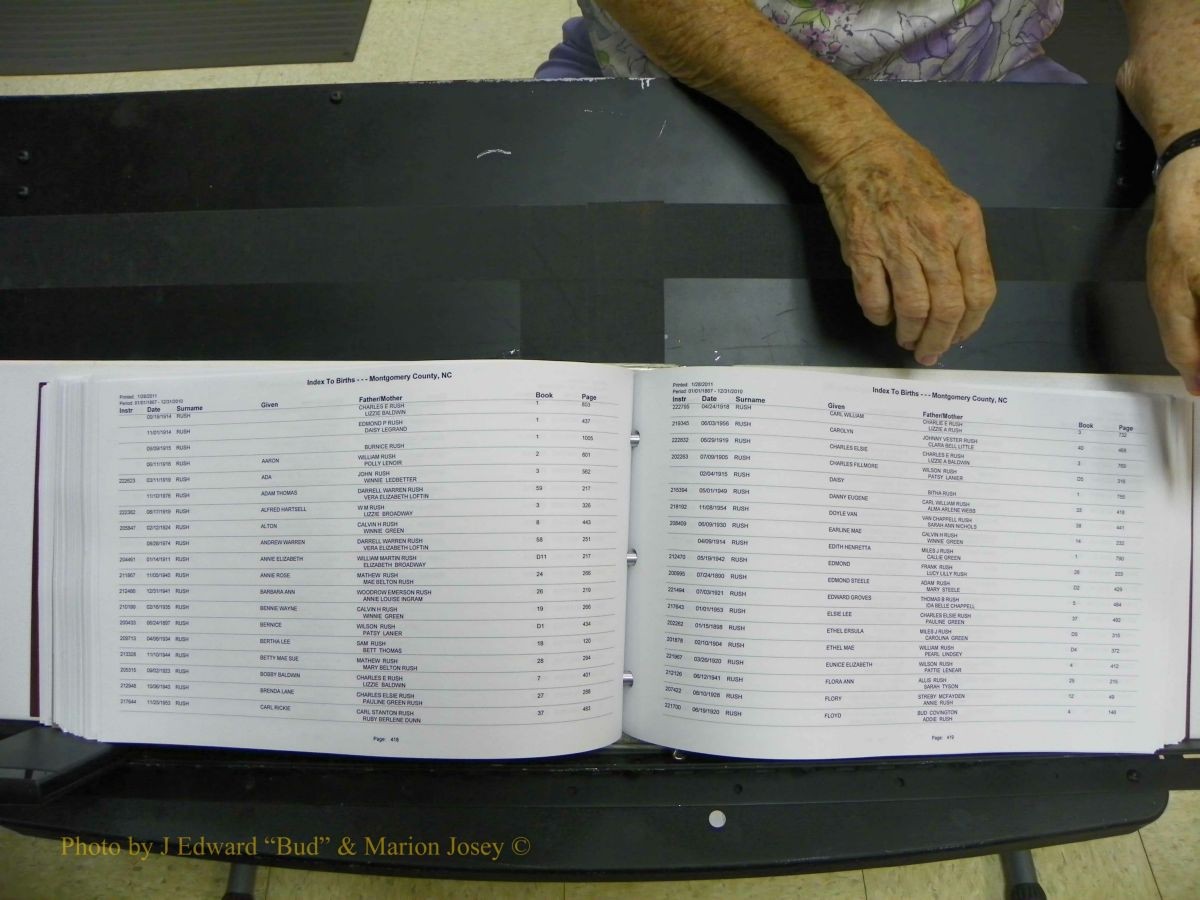 Index To Births - - - Montgomery County, NC
Printed: 1/28/2011
Period: 01/01/1867 - 12/31/2010
Instr Date Surname Given Father/Mother Book Page
RUSH CHARLES E RUSH 1
LIZZIE BALDWIN
11/01/1914 RUSH EDMOND P RUSH 1 437
DAISY LEGRAND
RUSH BURNICE RUSH 1 1005
RUSH AARON WILLIAM RUSH 2 601
POLLY LENOIR
RUSH ADA JOHN RUSH 3 562
WINNIE LEDBETTER
RUSH ADAM THOMAS DARRELL WARREN RUSH 59 217
VERA ELIZABETH LOFTIN
RUSH ALFRED HARTSELL W M RUSH 3 326
LIZZIE BROADWAY
RUSH ALTON CALVIN H RUSH 8 443
WINNIE GREEN
RUSH ANDREW WARREN DARRELL WARREN RUSH 58 251
VERA ELIZABETH LOFTIN
01/14/1911 RUSH ANNIE ELIZABETH WILLIAM MARTIN RUSH D11 217
ELIZABETH BROADWAY
RUSH ANNIE ROSE MATHEW RUSH 24 266
MAE BELTON RUSH
12/31/1941 RUSH BARBARA ANN WOODROW EMERSON RUSH 26 219
ANNIE LOUISE INGRAM
RUSH BENNIE WAYNE CALVIN H RUSH 19 266
WINNIE GREEN
RUSH BERNICE WILSON RUSH D1 434
PATSY LANIER
209713 RUSH BERTHA LEE SAM RUSH 18 120
BETT THOMAS
11/10/1944 RUSH BETTY MAE SUE MATHEW RUSH 28 294
MARY BELTON RUSH
205315 09/02/1923 RUSH BOBBY BALDWIN CHARLES E RUSH 7 401
LIZZIE BALDWIN
212948 RUSH BRENDA LANE CHARLES ELSIE RUSH 27
PAULINE GREEN RUSH
217644 11/23/1953 RUSH CARL RICKIE CARL STANTON RUSH 37 483
RUBY BERLENE DUNN
Page: 418
Index To Births - - - Montgomery County, NC
Printed: 1/28/2011
Period: 01/01/1867 - 12/31/2010
Instr Date Surname Given Father/Mother Book Page
04/24/1918 RUSH CARL WILLIAM CHARLIE E RUSH 3 732
LIZZIE A RUSH
219345 06/03/1956 RUSH CAROLYN JOHNNY VESTER RUSH 40
CLARA BELL LITTLE
222832 06/29/1919 RUSH CHARLES ELSIE CHARLES E RUSH 3
LIZZIE A BALDWIN
07/09/1905 RUSH CHARLES FILLMORE WILSON RUSH D5
PATSY LANIER
02/04/1915 RUSH DAISY BITHA RUSH 1
215394 05/01/1949 RUSH DANNY EUGENE CARL WILLIAM RUSH 418
ALMA ARLENE WEBB
218192 11/08/1954 RUSH DOYLE VAN VAN CHAPPELL RUSH 441
SARAH ANN NICHOLS
208409 06/09/1930 RUSH EARLINE MAE CALVIN H RUSH 14 232
WINNIE GREEN
04/09/1914 RUSH EDITH HENRETTA MILES J RUSH 1
CALLIE GREEN
212470 05/19/1942 RUSH EDMOND FRANK RUSH
LUCY LILLY RUSH
200995 07/24/1890 RUSH EDMOND STEELE ADAM RUSH D2 429
MARY STEELE
221494 07/03/1921 RUSH EDWARD GROVES THOMAS B RUSH 5 484
IDA BELLE CHAPPELL
217643 01/01/1953 RUSH ELSIE LEE CHARLES ELSIE RUSH 37 482
PAULINE GREEN
202262 01/15/1898 RUSH ETHEL ERSULA MILES J RUSH 315
CAROLINA GREEN
201878 02/10/1904 RUSH ETHEL MAE WILLIAM RUSH D4 372
PEARL LINDSEY
03/26/1920 RUSH EUNICE ELIZABETH WILSON RUSH 4 412
PATTIE LENEAR
212126 06/12/1941 RUSH FLORA ANN ALLIS RUSH 25 215
SARAH TYSON
207422 RUSH FLORY STREBY MCFAYDEN 12 49
ANNIE RUSH
221700 06/19/1920 RUSH FLOYD BUD COVINGTON 4
ADDIE RUSH
Page: 419
Photo by J Edward “Bud” & Marion Josey ©